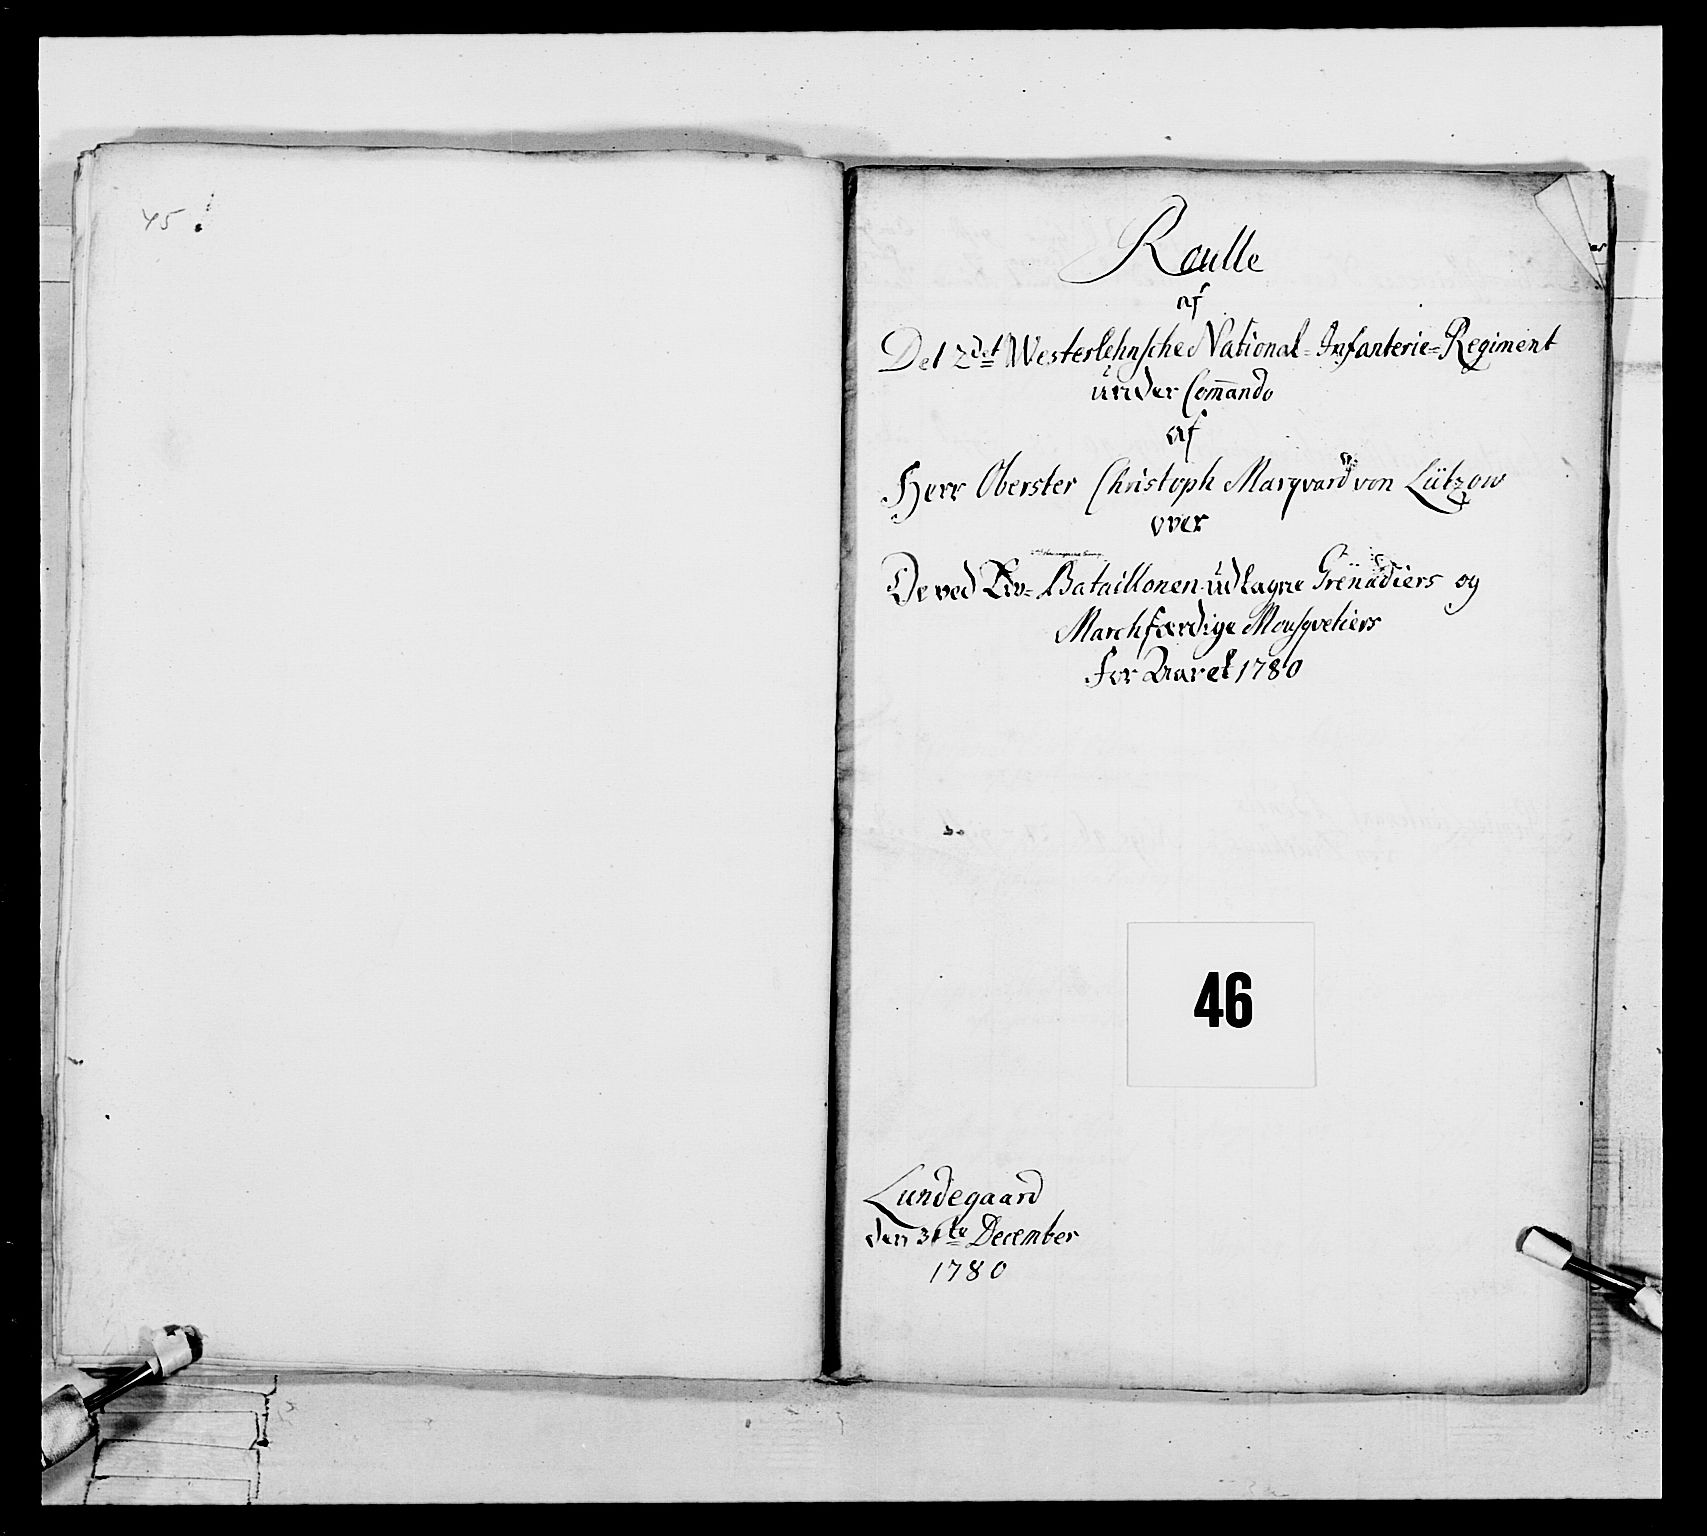 45!
Roulle
af
Det 2det Westerlehnsche National-Infanterie-Regiment
under Com̄ando
af
Herr Oberster Christoph Marqvard von Lützow
over
De ved Liv-Bataillonen udtagne Grenadiers og
Marchfærdige Mousqvetiers
for Aaret 1780
46
Lundegaard
den 31te December
1780